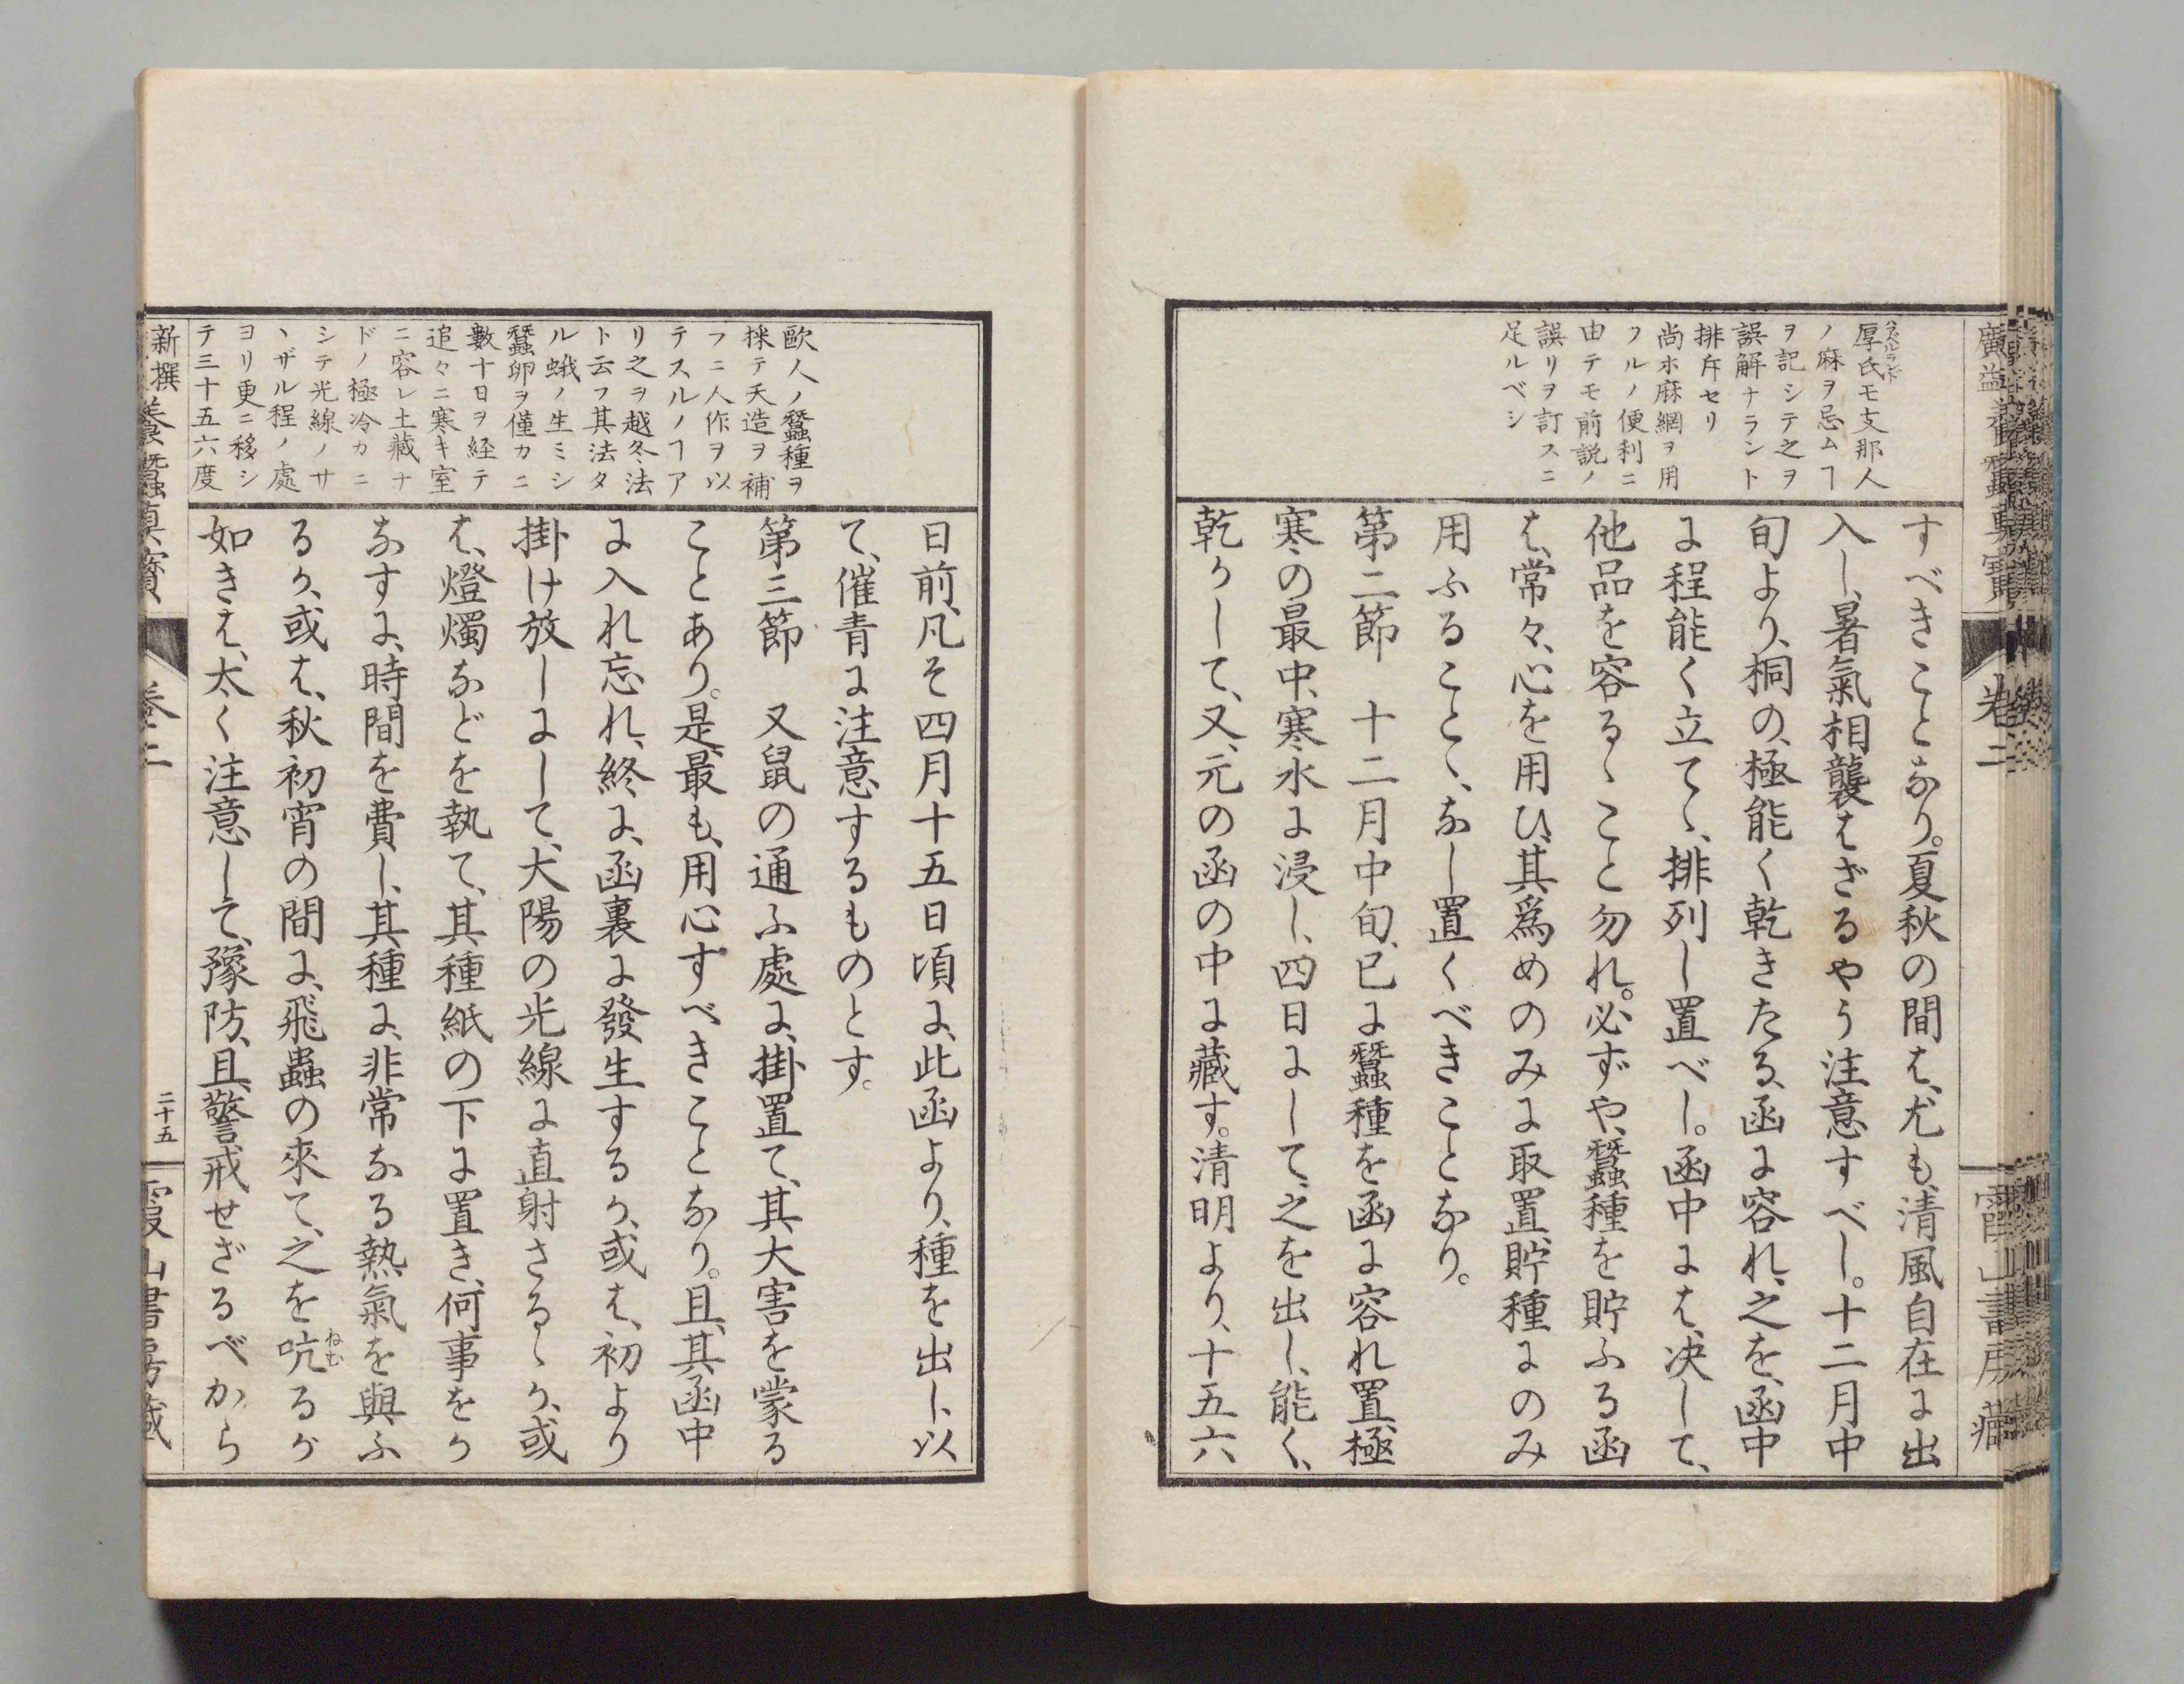 厚氏モ支那人
ノ麻ヲ忌ムヿ
ヲ記シテ之ヲ
誤解ナラント
排斥セリ
尚ホ麻網ヲ用
フルノ便利ニ
由テモ前説ノ
誤リヲ訂スニ
足ルベシ
すべきことあり。夏秋の間は、尤も、清風自在に出
入し、暑氣相襲はざるやう注意すべし。十二月中
旬より、桐の、極能く乾きたる、函に容れ、之を、函中
に程能く立てゝ、排列し置べし。函中には、决して、
他品を容るゝこと勿れ。必ずや、蠶種を貯ふる函
は、常々、心を用ひ、其爲めのみに取置、貯種にのみ
用ふることゝ、なし置くべきことなり。
第二節　十二月中旬、已に蠶種を函に容れ置、極
寒の最中、寒水に浸し、四日にして、之を出し、能く、
乾かして、又、元の函の中に藏す。清明より、十五六
卷二
歐人ノ蠶種ヲ
採テ天造ヲ補
フニ人作ヲ以
テスルノヿア
リ之ヲ越冬法
ト云フ其法タ
ル蛾ノ生ミシ
蠶卵ヲ僅カニ
數十日ヲ経テ
追々ニ寒キ室
ニ容レ土藏ナ
ドノ極冷カニ
シテ光線ノサ
ヽザル程ノ處
ヨリ更ニ移シ
テ三十五六度
日前、凡そ四月十五日頃に、此函より、種を出し、以
て、催青に注意するものとす。
第三節　又鼠の通ふ處に、掛置て、其大害を蒙る
ことあり。是、最も、用心すべきことなり。且、其函中
に入れ忘れ、終に、函裏に發生するか、或は、初より
掛け放しにして、大陽の光線に直射さるゝか、或
は、燈燭などを執て、其種紙の下に置き、何事をか
なすに、時間を費し、其種に、非常なる熱氣を與ふ
るか、或は、秋初宵の間に、飛蟲の來て、之を吭るが
ねむ
如きは、太く注意して、豫防、且、警戒せざるべから
新撰養蠶眞寶
卷二
二十五
霞山書房藏